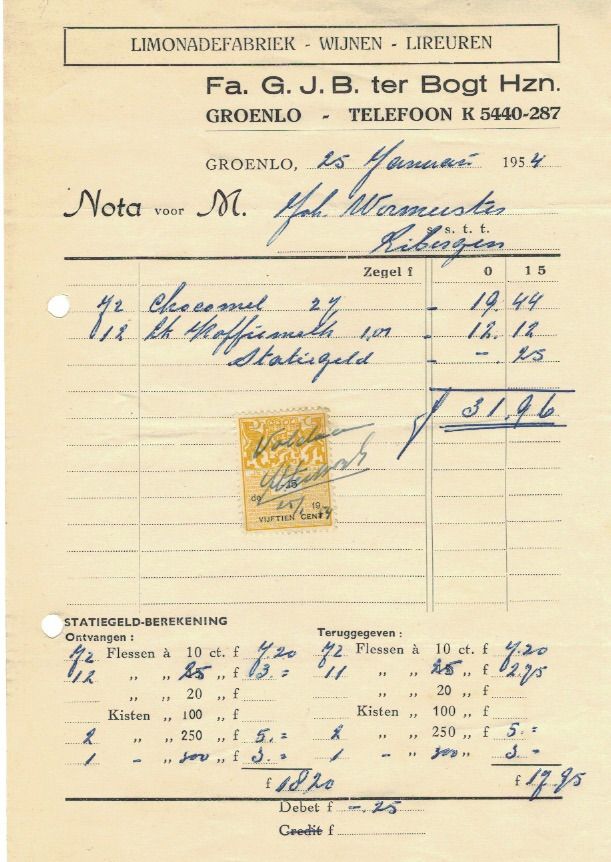 LIMONADEFABRIEK - WIJNEN - LIREUREN
Fa. G. J. B. ter Bogt Hzn.
GROENLO - TELEFOON K 5440-287
GROENLO, 25 Januari 1954
Nota voor M. Joh. Wormeester
s. s. t. t.
Zegel f 0 15
72 Chocomel 27 - 19.44
12 Koffiemelk 1,01 - 12.12
Statiegeld - -.25
f 31.96
Voldaan
de 15 19
25/1 54
VIJFTIEN CENT
STATIEGELD-BEREKENING
Ontvangen : Teruggegeven :
72 Flessen à 10 ct. f 7.20 72 Flessen à 10 ct. f 7.20
12 „ „ 25 „ f 3.= 11 „ „ 25 „ f 2.75
„ „ 20 „ f „ „ 20 „ f
Kisten „ 100 „ f Kisten „ 100 „ f
2 „ „ 250 „ f 5.= 2 „ „ 250 „ f 5.=
1 - „ 300 „ f 3.= 1 - „ 300 „ f 3.=
f 18.20 f 17.95
Debet f -.25
Credit f